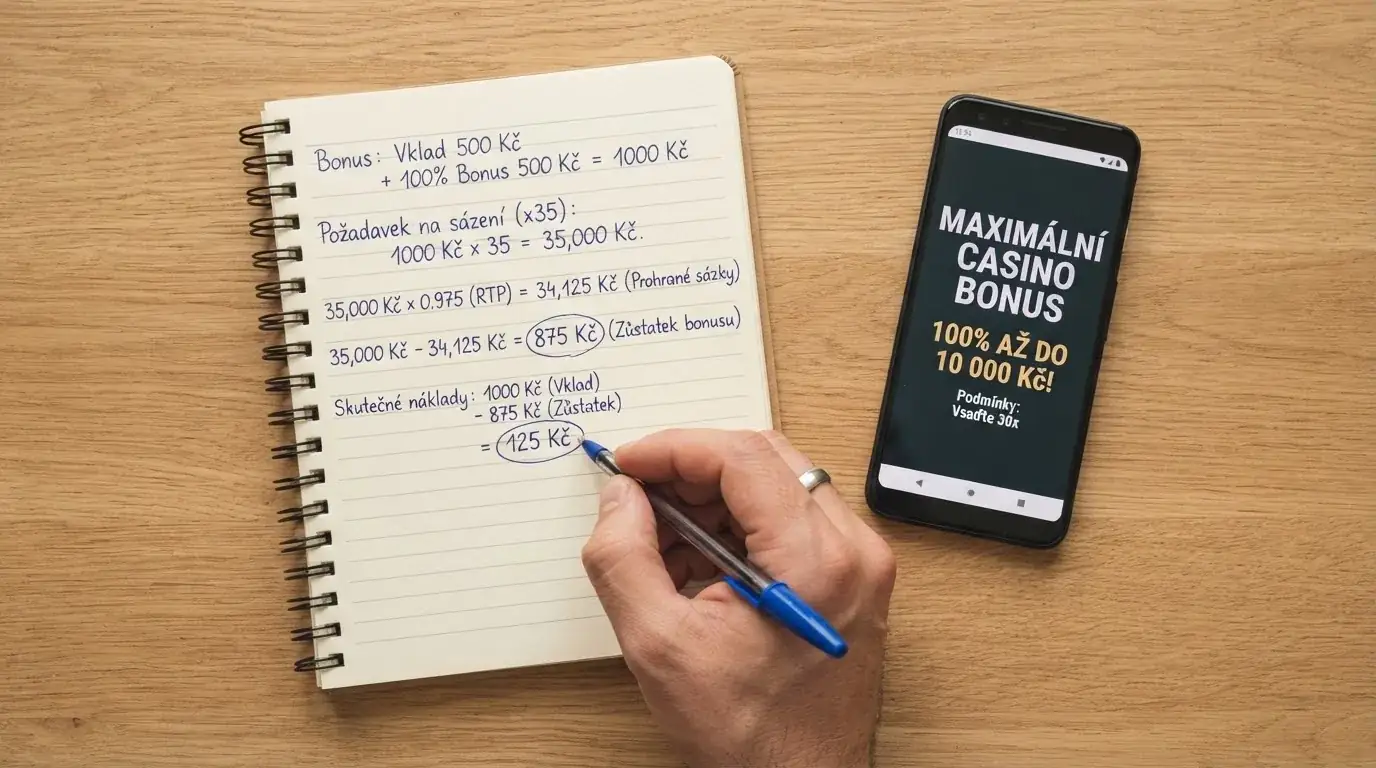 Bonus: Vklad 500 Kč
+ 100% Bonus 500 Kč = 1000 Kč
Požadavek na sázení (x35):
1000 Kč x 35 = 35,000 Kč.
35,000 Kč x 0.975 (RTP) = 34,125 Kč (Prohrané sázky)
35,000 Kč - 34,125 Kč = 875 Kč (Zůstatek bonusu)
Skutečné náklady: 1000 Kč (Vklad)
- 875 Kč (Zůstatek)
= 125 Kč
MAXIMÁLNÍ
CASINO
BONUS
100% AŽ DO
10 000 Kč!
Podmínky:
Vsaďte 30x